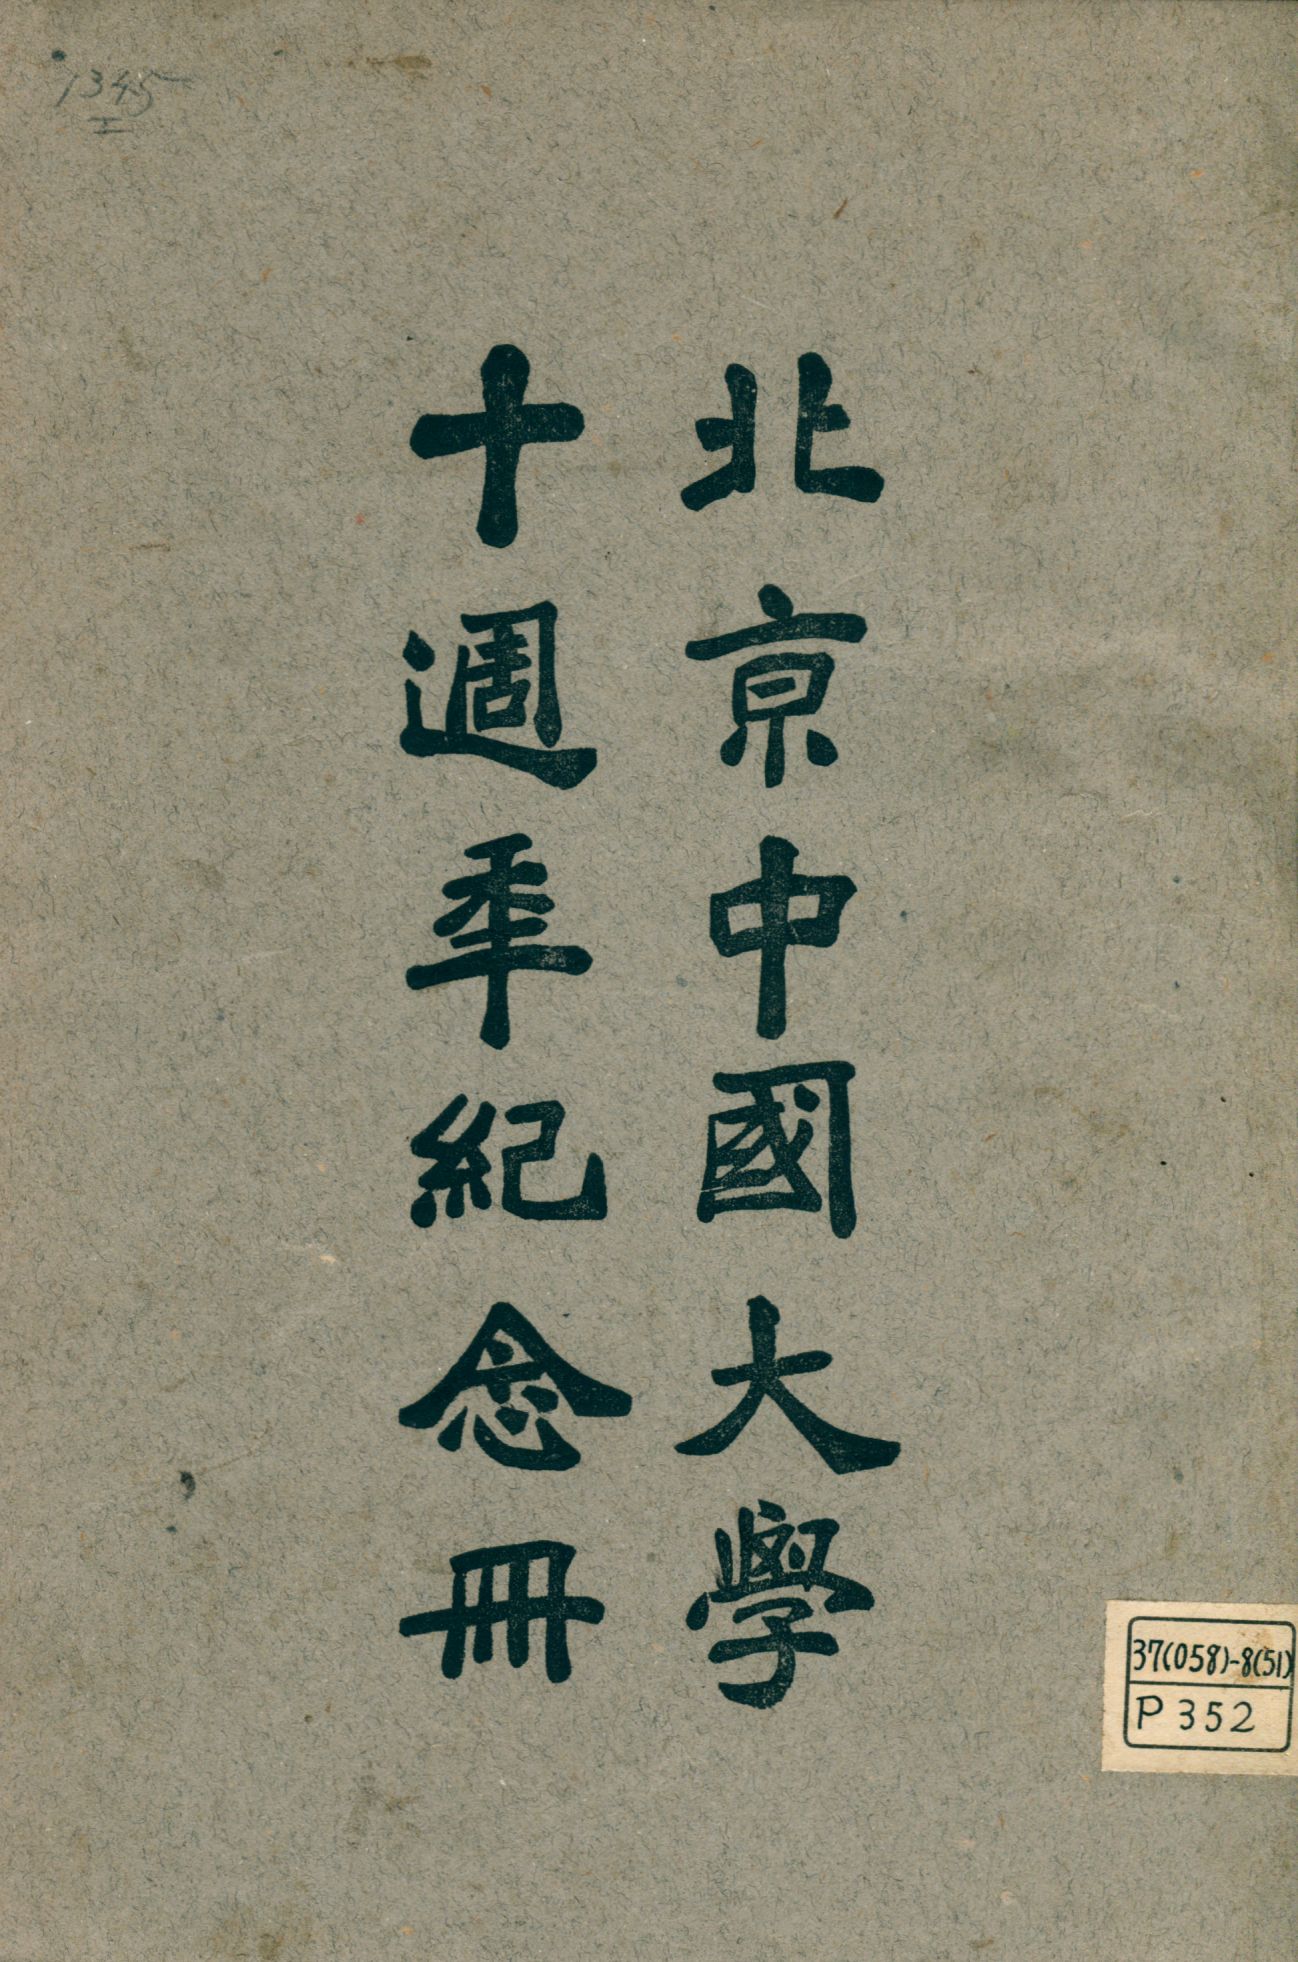 北京中國大學
十週年紀念冊
1345
37(058)-8(51)
P352